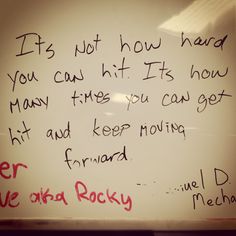 It's not how hard
you can hit. It's how
many times you can get
hit and keep moving
forward.
aka Rocky
D.
Mecha